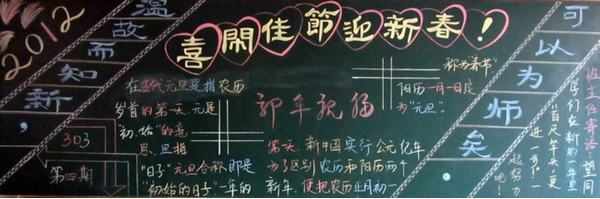 2012
温故而知新，
可以为师矣
喜闹佳節迎新春！
303
第四期
在古代元旦是指农历
岁首的第一天元是
初、始的意
思、旦指
"日子"元旦合称即是
"初始的日子"一年的
第一天、新中国实行公元纪年
为了区别农历和阳历两个
新年，便把农历正月初一
称为"春节"
阳历一月一日定
为"元旦"。
新年祝福
班主任寄语：望同
学们在新的一年里
百尺竿头，更
进一步！